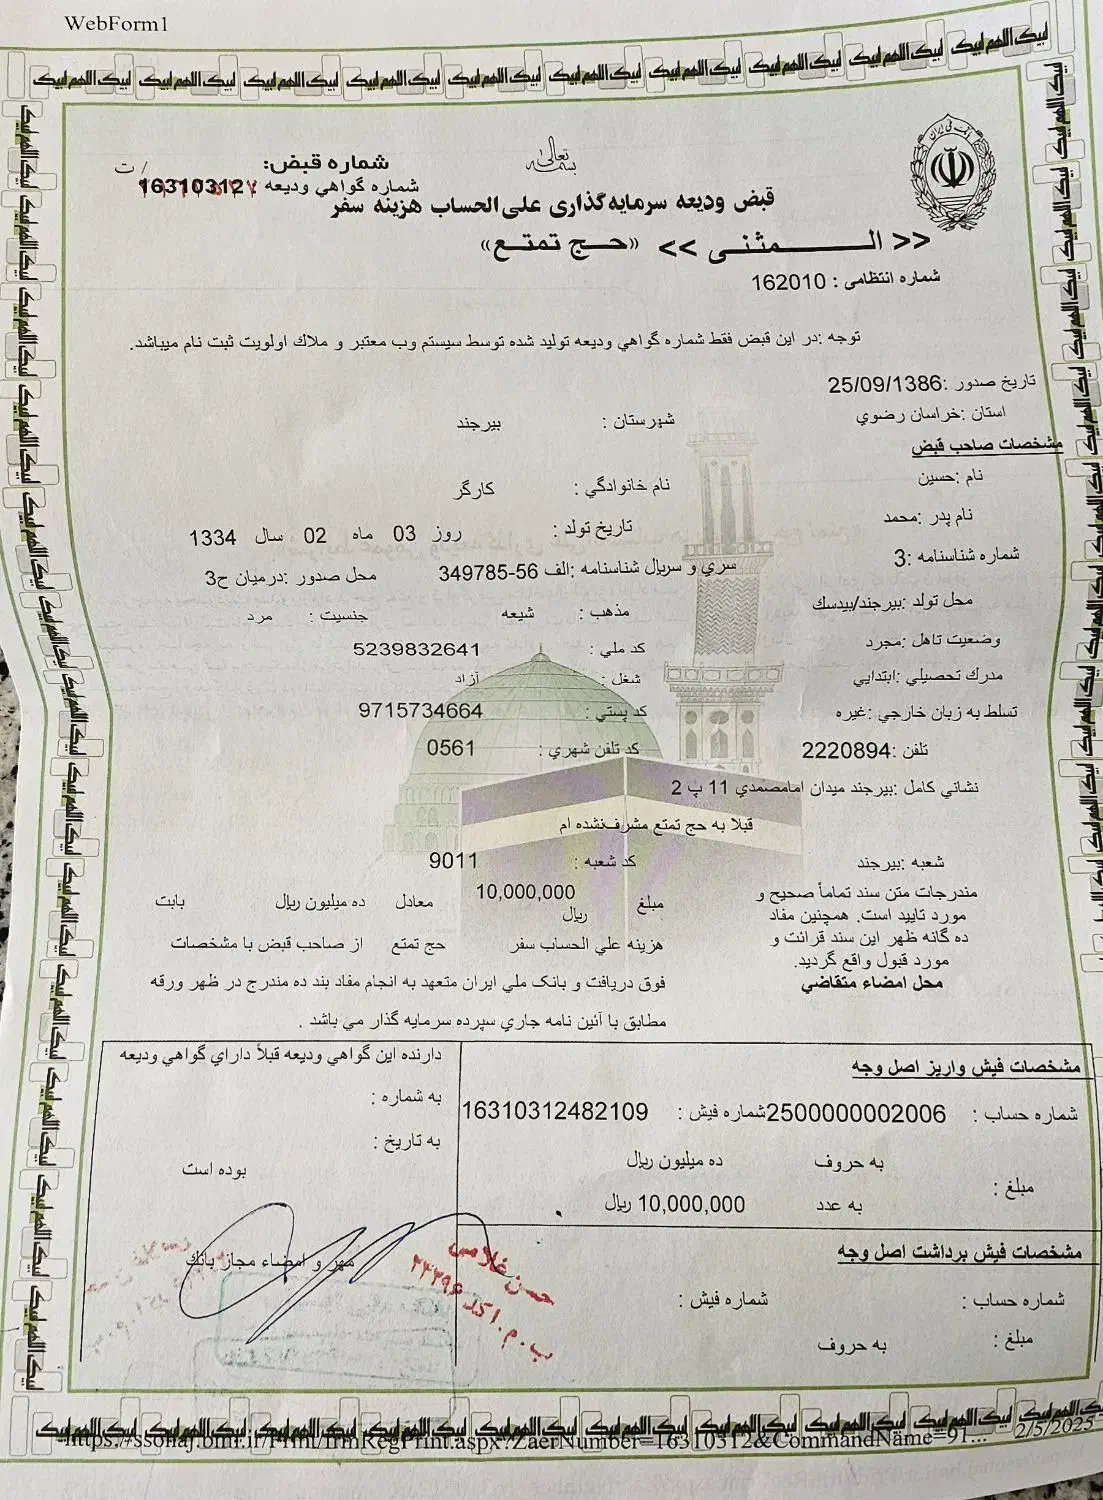 WebForm1
لبيك اللهم لبيك
بانک ملی ایران
بسمه تعالی
شماره قبض:
/ ت
شماره گواهي وديعه : 16310312
قبض ودیعه سرمایه‌گذاری علی‌الحساب هزینه سفر
<< المـــــــثنی >> «حــج تمتــع»
شماره انتظامی : 162010
توجه :در اين قبض فقط شماره گواهي وديعه توليد شده توسط سيستم وب معتبر و ملاك اولويت ثبت نام ميباشد.
تاريخ صدور :25/09/1386
استان :خراسان رضوي شهرستان : بيرجند
مشخصات صاحب قبض
نام :حسين نام خانوادگي : كارگر
نام پدر :محمد تاريخ تولد : روز 03 ماه 02 سال 1334
شماره شناسنامه :3 سري و سريال شناسنامه :الف 56-349785 محل صدور :درميان ح3
محل تولد :بيرجند/بيدسك مذهب : شيعه جنسيت : مرد
وضعيت تاهل :مجرد كد ملي : 5239832641
مدرك تحصيلي :ابتدايي شغل : آزاد
تسلط به زبان خارجي :غيره كد پستي : 9715734664
تلفن :2220894 كد تلفن شهري : 0561
نشاني كامل :بيرجند ميدان امامصمدي 11 پ 2
قبلا به حج تمتع مشرف‌نشده ام
شعبه :بيرجند كد شعبه : 9011
مندرجات متن سند تماماً صحيح و
مورد تاييد است. همچنين مفاد
ده گانه ظهر اين سند قرائت و
مورد قبول واقع گرديد.
محل امضاء متقاضي
مبلغ 10,000,000 ريال معادل ده ميليون ريال بابت
هزينه علي الحساب سفر حج تمتع از صاحب قبض با مشخصات
فوق دريافت و بانك ملي ايران متعهد به انجام مفاد بند ده مندرج در ظهر ورقه
مطابق با آئين نامه جاري سپرده سرمايه گذار مي باشد .
مشخصات فيش واريز اصل وجه
شماره حساب : 2500000002006 شماره فيش : 16310312482109
مبلغ :
به حروف ده ميليون ريال
به عدد 10,000,000 ريال
مشخصات فيش برداشت اصل وجه
شماره حساب : شماره فيش :
مبلغ : به حروف
دارنده اين گواهي وديعه قبلاً داراي گواهي وديعه
به شماره :
به تاريخ :
بوده است
مهر و امضاء مجاز بانك
حسن غلامی
ب.م.ا کد ۲۴۳۹۶
https://ssohaj.bmi.ir/Print/frmRegPrint.aspx?ZaerNumber=16310312&CommandName=91... 2/5/2025